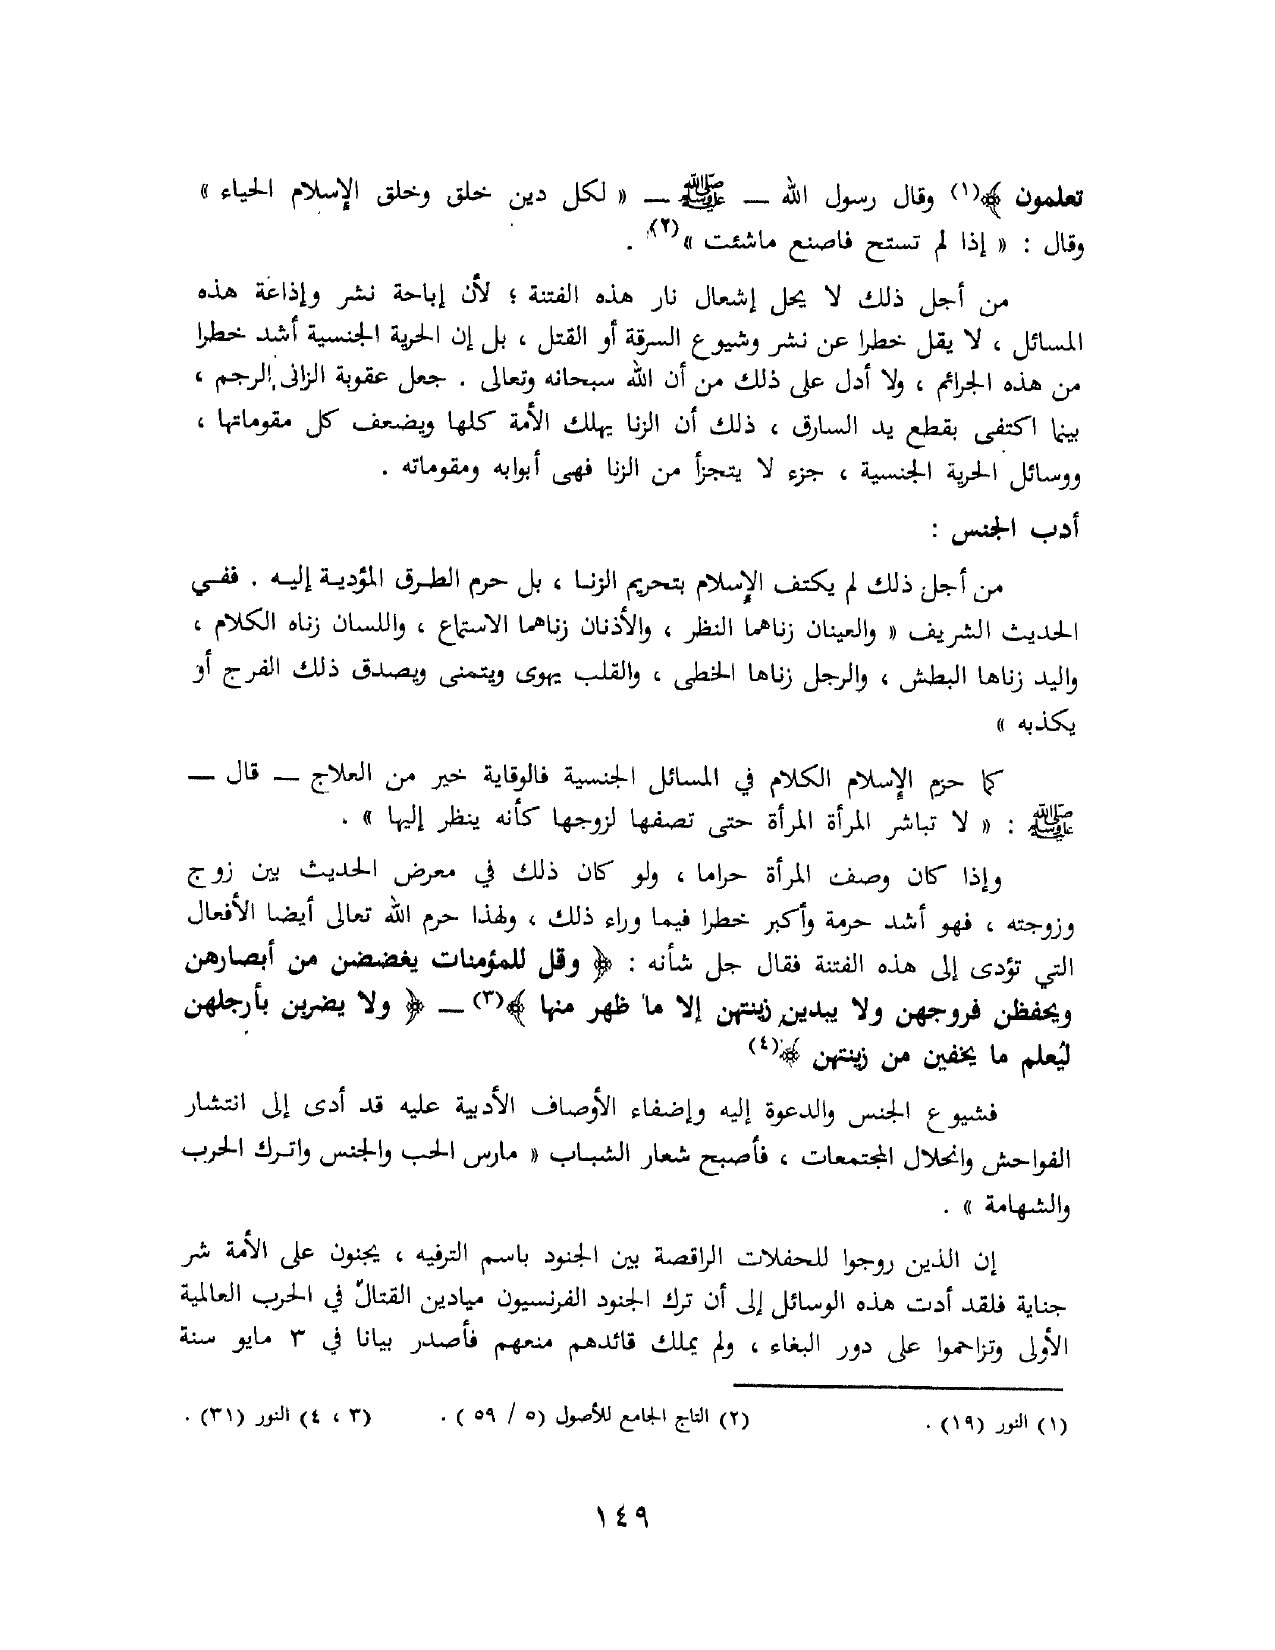 تعلمون ﴾(١) وقال رسول الله — ﷺ — « لكل دين خلق وخلق الإسلام الحياء »
وقال : « إذا لم تستح فاصنع ماشئت »(٢) .
من أجل ذلك لا يحل إشعال نار هذه الفتنة ؛ لأن إباحة نشر وإذاعة هذه
المسائل ، لا يقل خطرا عن نشر وشيوع السرقة أو القتل ، بل إن الحرية الجنسية أشد خطرا
من هذه الجرائم ، ولا أدل على ذلك من أن الله سبحانه وتعالى . جعل عقوبة الزانى الرجم ،
بينما اكتفى بقطع يد السارق ، ذلك أن الزنا يهلك الأمة كلها ويضعف كل مقوماتها ،
ووسائل الحرية الجنسية ، جزء لا يتجزأ من الزنا فهى أبوابه ومقوماته .
أدب الجنس :
من أجل ذلك لم يكتف الإسلام بتحريم الزنا ، بل حرم الطرق المؤدية إليه . ففي
الحديث الشريف « والعينان زناهما النظر ، والأذنان زناهما الاستماع ، واللسان زناه الكلام ،
واليد زناها البطش ، والرجل زناها الخطى ، والقلب يهوى ويتمنى ويصدق ذلك الفرج أو
يكذبه »
كما حرم الإسلام الكلام في المسائل الجنسية فالوقاية خير من العلاج — قال —
ﷺ : « لا تباشر المرأة المرأة حتى تصفها لزوجها كأنه ينظر إليها » .
وإذا كان وصف المرأة حراما ، ولو كان ذلك في معرض الحديث بين زوج
وزوجته ، فهو أشد حرمة وأكبر خطرا فيما وراء ذلك ، ولهذا حرم الله تعالى أيضا الأفعال
التي تؤدى إلى هذه الفتنة فقال جل شأنه : ﴿ وقل للمؤمنات يغضضن من أبصارهن
ويحفظن فروجهن ولا يبدين زينتهن إلا ما ظهر منها ﴾(٣) — ﴿ ولا يضربن بأرجلهن
ليُعلم ما يخفين من زينتهن ﴾(٤)
فشيوع الجنس والدعوة إليه وإضفاء الأوصاف الأدبية عليه قد أدى إلى انتشار
الفواحش وانحلال المجتمعات ، فأصبح شعار الشباب « مارس الحب والجنس واترك الحرب
والشهامة » .
إن الذين روجوا للحفلات الراقصة بين الجنود باسم الترفيه ، يجنون على الأمة شر
جناية فلقد أدت هذه الوسائل إلى أن ترك الجنود الفرنسيون ميادين القتال في الحرب العالمية
الأولى وتزاحموا على دور البغاء ، ولم يملك قائدهم منعهم فأصدر بيانا في ٣ مايو سنة
(١) النور (١٩) . (٢) التاج الجامع للأصول (٥ / ٥٩ ) . (٣ ، ٤) النور (٣١) .
١٤٩